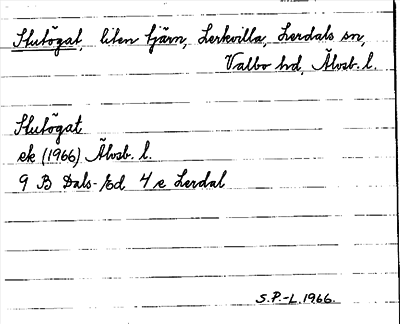 Stutögat, liten tjärn, Lerkvilla, Lerdals sn,
Valbo hd, Älvsb. l.
Stutögat
ek (1966) Älvsb. l.
9 B Dals-Ed 4 e Lerdal
S.P.-L. 1966.